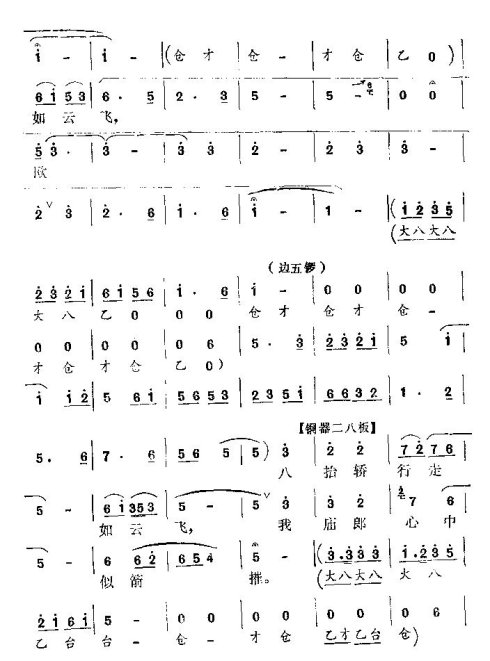 i - | i - | (仓 才 | 仓 - | 才 仓 | 乙 0 )
6 i 5 3 | 6 · 5 | 2 · 3 | 5 - | 5 - | 0 0
如 云 飞,
5 3 · | 3 - | 3 3 | 2 - | 2 3 | 3 -
2 ∨ 3 | 2 · 6 | 1 · 6 | i - | 1 - | (1 2 3 5
(大八大八
(边五锣)
2 3 2 i | 6 i 5 6 | i · 6 | i - | 0 0 | 0 0
大 八 乙 0 0 0 仓 才 仓 才 仓 -
0 0 | 0 0 | 0 0 | 5 · 3 | 2 3 2 1 | 5 i
才 仓 才 仓 乙 0)
i i 2 | 5 6 i | 5 6 5 3 | 2 3 5 i | 6 6 3 2 | 1 · 2
【铜器二八板】
5 · 6 | 7 · 6 | 5 6 5 | 5 ) 3 | 2 2 | 7 2 7 6
八 抬 轿 行 走
5 - | 6 i 3 5 3 | 5 - | 5 ∨ 3 | 3 2 | 7 6
如 云 飞, 我 庙 郎 心 中
5 - | 6 6 2 | 6 5 4 | 5 - | (3 · 3 3 3 | 1 · 2 3 5
似 箭 摧。 (大八大八 大 八
2 i 6 i | 5 - | 0 0 | 0 0 | 0 0 | 0 6
乙 台 台 - 仓 - 才 仓 乙才乙台 仓)